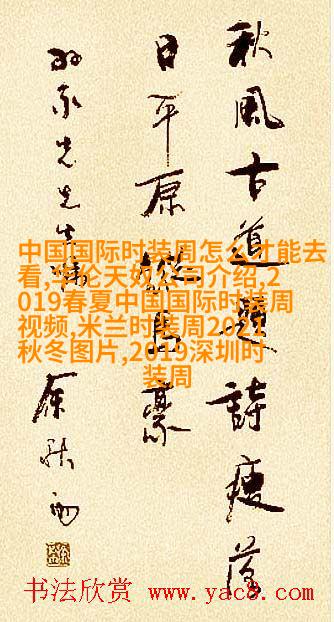 秋風古道題詩瘦落
日平原縱馬豪
家先生 余秋雨
中国国际时装周怎么才能去
看,华伦天奴公司介绍,2
019春夏中国国际时装周
视频,米兰时装周2021
秋冬图片,2019深圳时
装周
书法欣赏 www.yac8.com